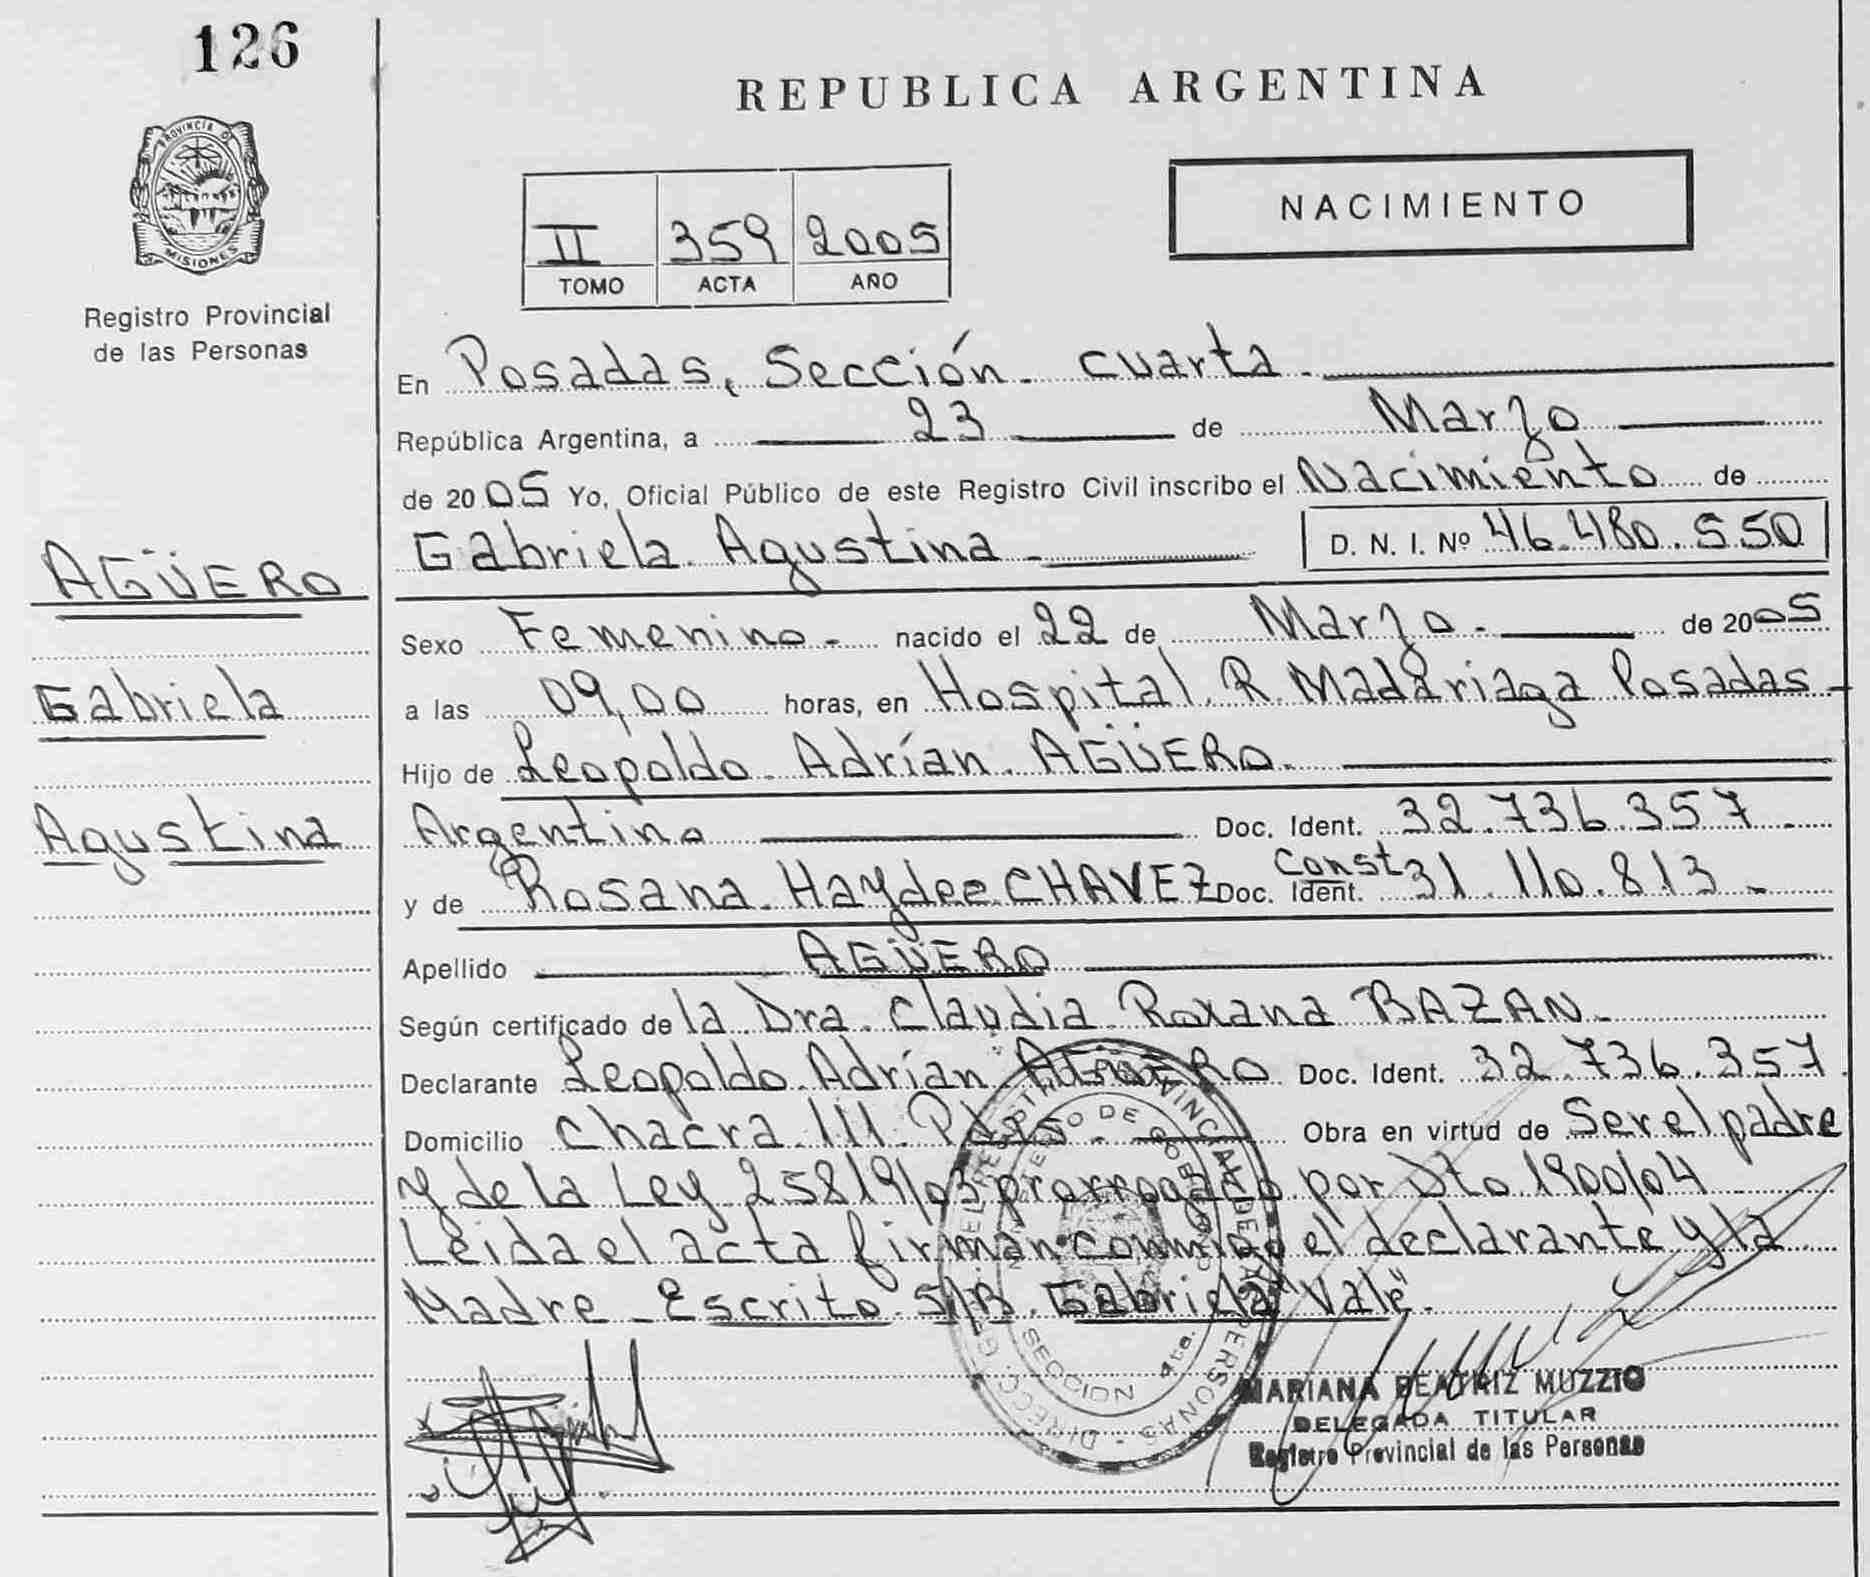 126
REPUBLICA ARGENTINA
PROVINCIA DE
MISIONES
Registro Provincial
de las Personas
II 359 2005
TOMO ACTA AÑO
NACIMIENTO
En Posadas, Sección cuarta
República Argentina, a 23 de Marzo
de 2005 Yo, Oficial Público de este Registro Civil inscribo el Nacimiento de
Gabriela Agustina D. N. I. Nº 46.480.550
AGÜERO
Sexo Femenino nacido el 22 de Marzo de 2005
Gabriela
a las 09,00 horas, en Hospital R. Madariaga Posadas
Hijo de Leopoldo Adrían AGÜERO
Agustina
Argentino Doc. Ident. 32.736.357
Const
y de Rosana Haydee CHAVEZ Doc. Ident. 31.110.813
Apellido AGÜERO
Según certificado de la Dra. Claudia Roxana BAZAN
Declarante Leopoldo Adrían AGÜERO Doc. Ident. 32.736.357
Domicilio Chacra 111 Pdas Obra en virtud de Ser el padre
y de la Ley 25819/03 prorrogado por Dto 1900/04
Leida el acta firman conmigo el declarante y la
Madre Escrito S/R. Gabriela "Vale".
SECCION 4ta.
MARIANA BEATRIZ MUZZIO
DELEGADA TITULAR
Registro Provincial de las Personas